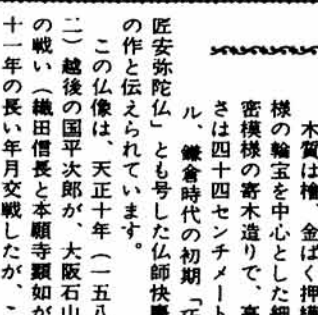 木質は檜、金ぱく押模
様の輪宝を中心とした細
密模様の寄木造りで、高
さは四十四センチメート
ル、鎌倉時代の初期「巧
匠安弥陀仏」とも号した仏師快慶
の作と伝えられています。
この仏像は、天正十年（一五八
二）越後の国平次郎が、大阪石山
の戦い（織田信長と本願寺顕如が
十一年の長い年月交戦したが、こ